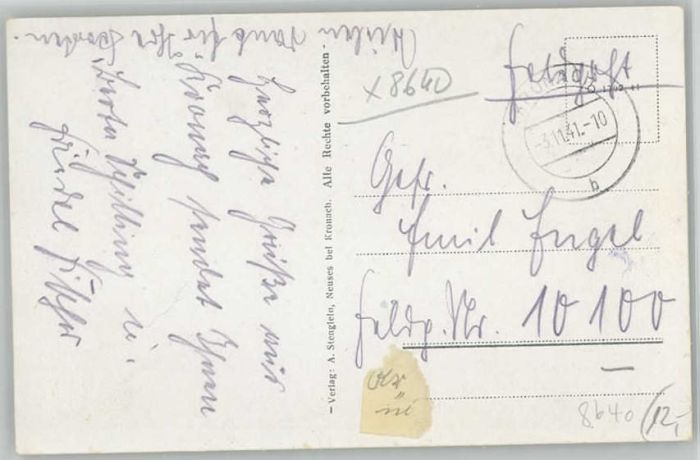 Vielen Dank für Ihre Worten.
Herzliche Grüße aus
Kronach sendet Ihnen
Berta Schilling u.
Gretel
- Verlag: A. Stenglein, Neuses bei Kronach. Alle Rechte vorbehalten -
x8640
Feldpost
-3.11.41.-10
Gefr.
Emil Engel
Feldp. Nr. 10 100
8640
12,-